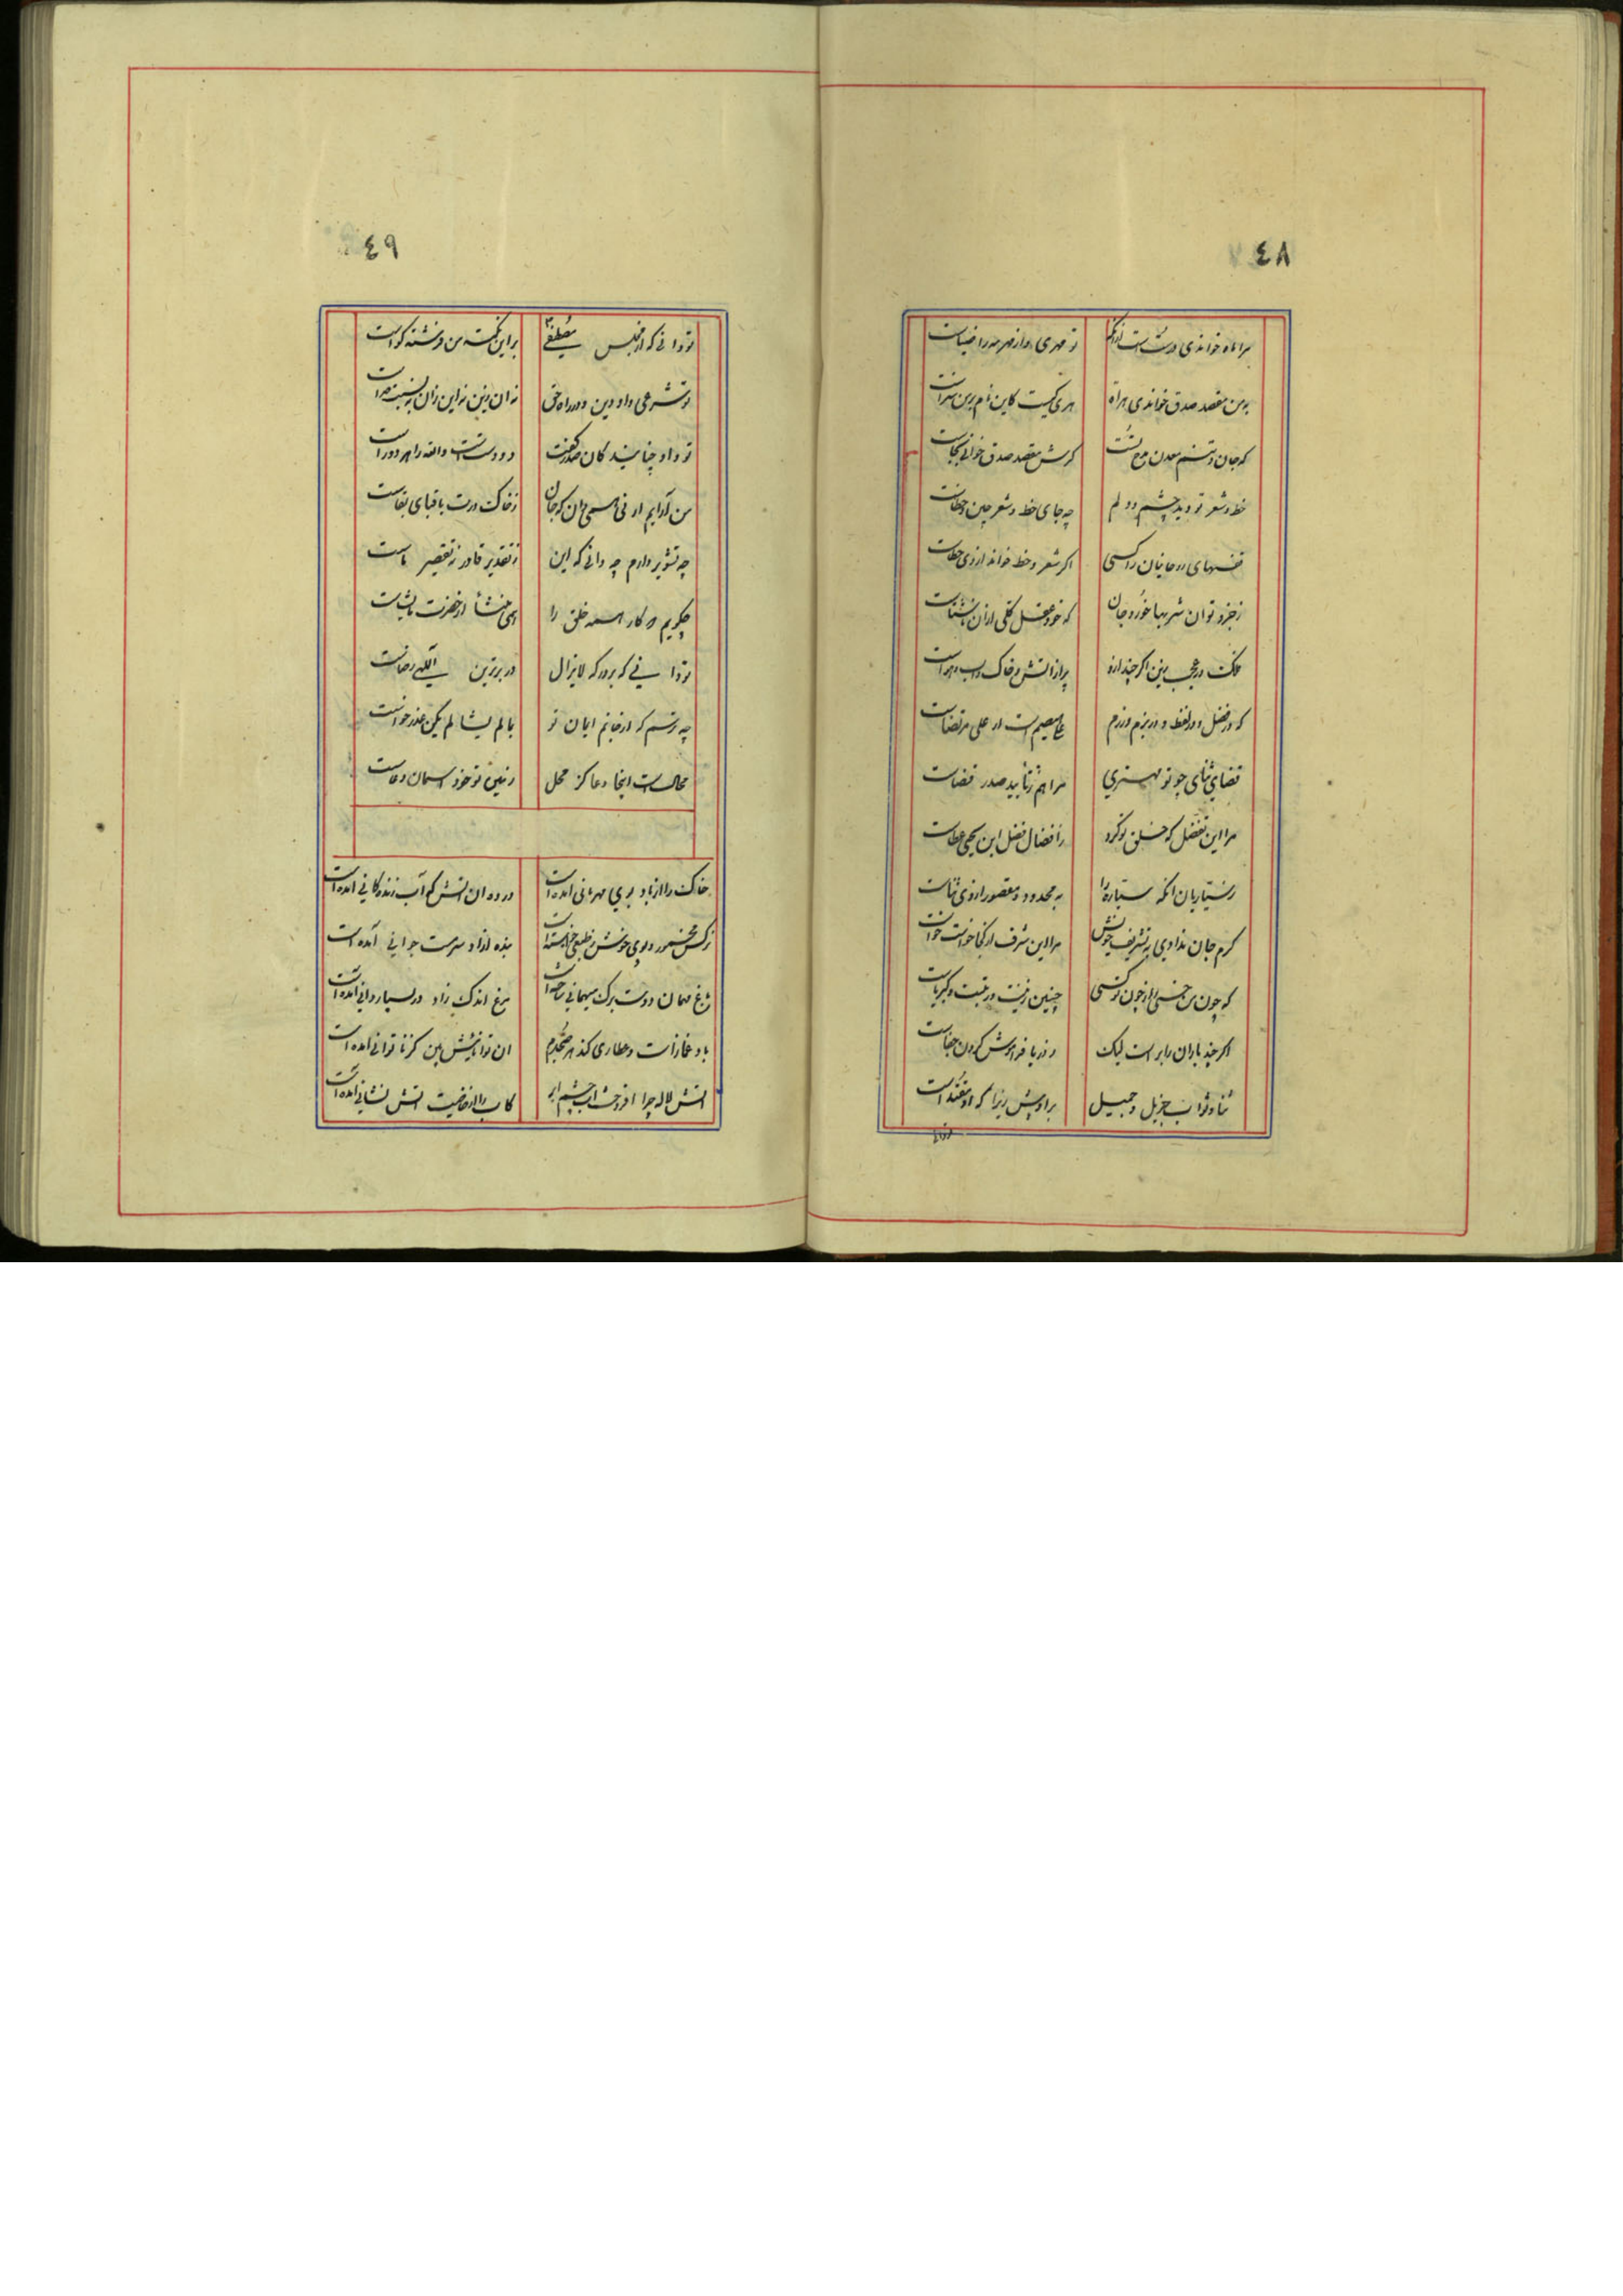 ٤٨
مرا ماه خواندی درست است ازانک
تو مهری و از مهر مه را ضیاست
به من مقصد صدق خواندی هراة
هری کیست کاین نام بر من سزاست
که جان و تنم معدن مدح تست
گرش مقصد صدق خوانی بجاست
خط و شعر تو دید چشم و دلم
چه جای خط و شعر چین و خطاست
نفسهای روحانیان را کسی
اکر شعر و خط خواند از وی خطاست
که خود عقل کلی ازان ناشتاست
ملک در عجب بین اکر چند ازو
پر از آتش و خاک و آب و هواست
که در فضل و در لفظ و در بزم و رزم
علی مرتضاست
قضای ثنای چو تو مهتری
مرا هم ز تأیید صدر قضاست
مرا این تفضل که خلق تو کرد
ز افضال فضل ابن یحیی عطاست
نه محدود و مقصور از وی ثناست
کرم جان ندادی به تشریف خویش
مرا این شرف از کجا خواست خواست
که چون من خسی را ز چون تو کسی
چنین زینت و رتبت و کبریاست
اکر چند باران ز ابر است لیک
ز دریا فراموش کردن جفاست
ثنا و ثواب جزیل و جمیل
بر اویش زیرا که او مقتداست
٤٩
تو دانی که از مجلس مصطفی
بر این نکته من فرشته کواست
تو شرعی و او دین و در راه حق
نه آن زین نه این زان به نسبت جداست
تو و او چنانید کان صدر گفت
دو دست است و الله را هر دو راست
ز خاک درت با قبای بقاست
چه تشویر دارم چه دانی که این
ز تقدیر قادر نه تقصیر ماست
چکویم که کار همه خلق را
همی منشأ از حضرت مایشاست
تو دانی که بر درکه لایزال
چه ترسم که از خاتم ایمان تو
بمالم یشا لم یکن عذر خواست
محالست اینجا دعا کز محل
زمین تو خود آسمان دعاست
خاک را از باد بوی مهربانی آمده است
در ده آن آتش که آب زندکانی آمده است
نرکس مخمور بوی خوش ز طبع خواسته است
بنده آزاد سرمست جوانی آمده است
باغ مهمان دوست برک میهمانی ساخته است
مرغ اندک زاد در بسیار دانی آمده است
باد غمازست و عطاری کند هر صبحدم
آن توانائیش بین کز ناتوانی آمده است
آتش لاله چرا افروخت آب چشم ابر
کاب را از خاصیت آتش نشانی آمده است